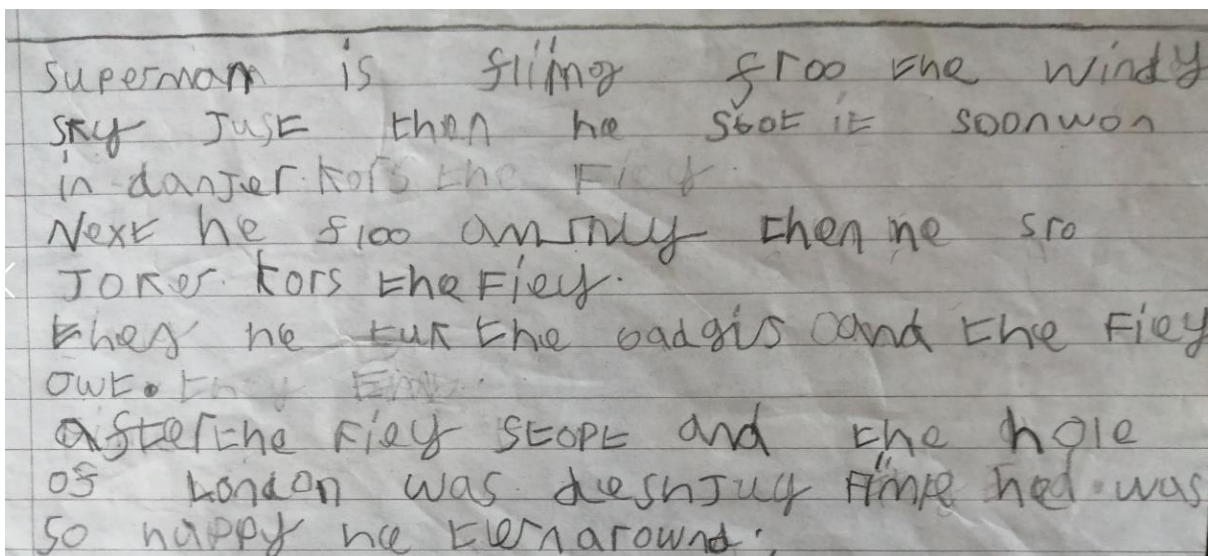 superman is fliing froo the windy
sky Just then he sbot it soonwon
in danJer. kors the Fiey.
Next he floo then he sro
JOKer. kors the Fiey.
then he tuk the badgis and the Fiey
owt.
after the Fiey stopt and the hole
of London was hed was
so happy he ternaround.